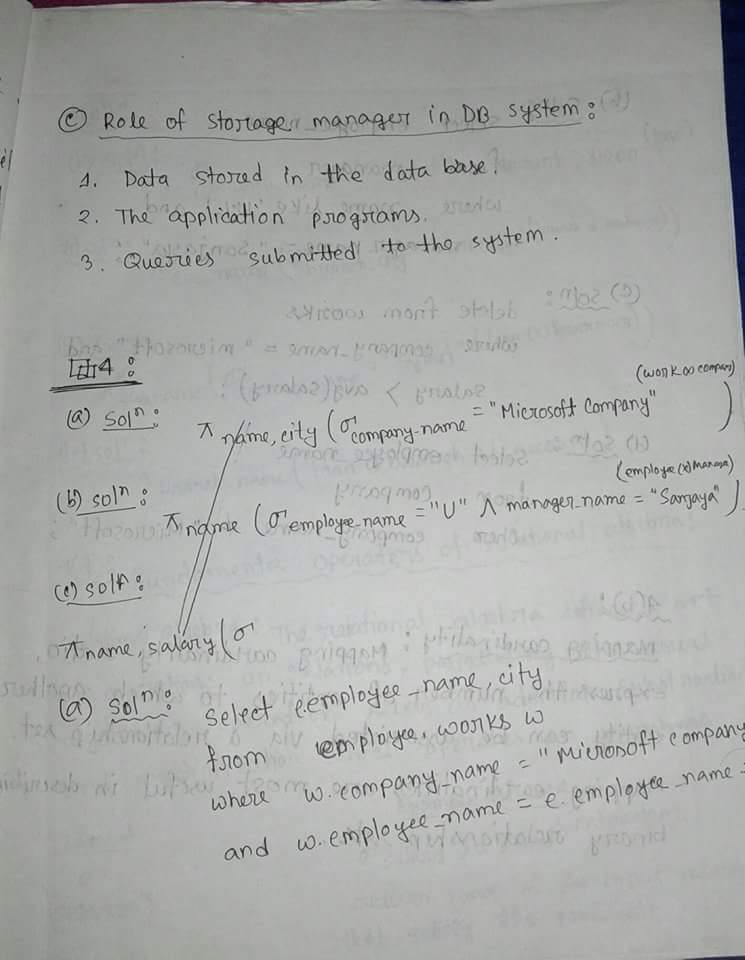 (c) Role of storage manager in DB system :
1. Data stored in the data base.
2. The application programs.
3. Queries submitted to the system.
4 :
(a) Solⁿ : π name, city (σ company-name = "Microsoft Company" (work ∞ company) )
(b) Solⁿ : π name (σ employee-name = "U" ∧ manager-name = "Sanjaya" (employee (∞) Manages) )
(c) Solⁿ :
π name, salary (σ
(a) Solⁿ : Select e.employee_name, city
from employee, works w
where w.company_name = "Microsoft company
and w.employee_name = e.employee_name =